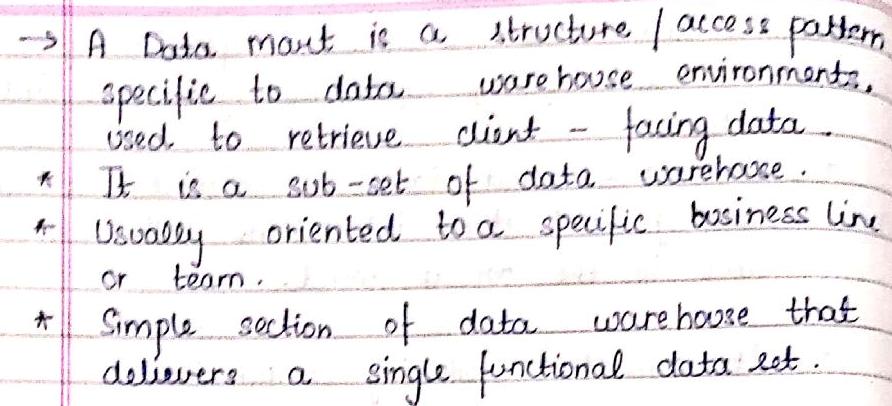 → A Data mart is a structure / access pattern
specific to data warehouse environments,
used to retrieve client - facing data.
* It is a sub-set of data warehouse.
* Usually oriented to a specific business line
or team.
* Simple section of data warehouse that
delievers a single functional data set.